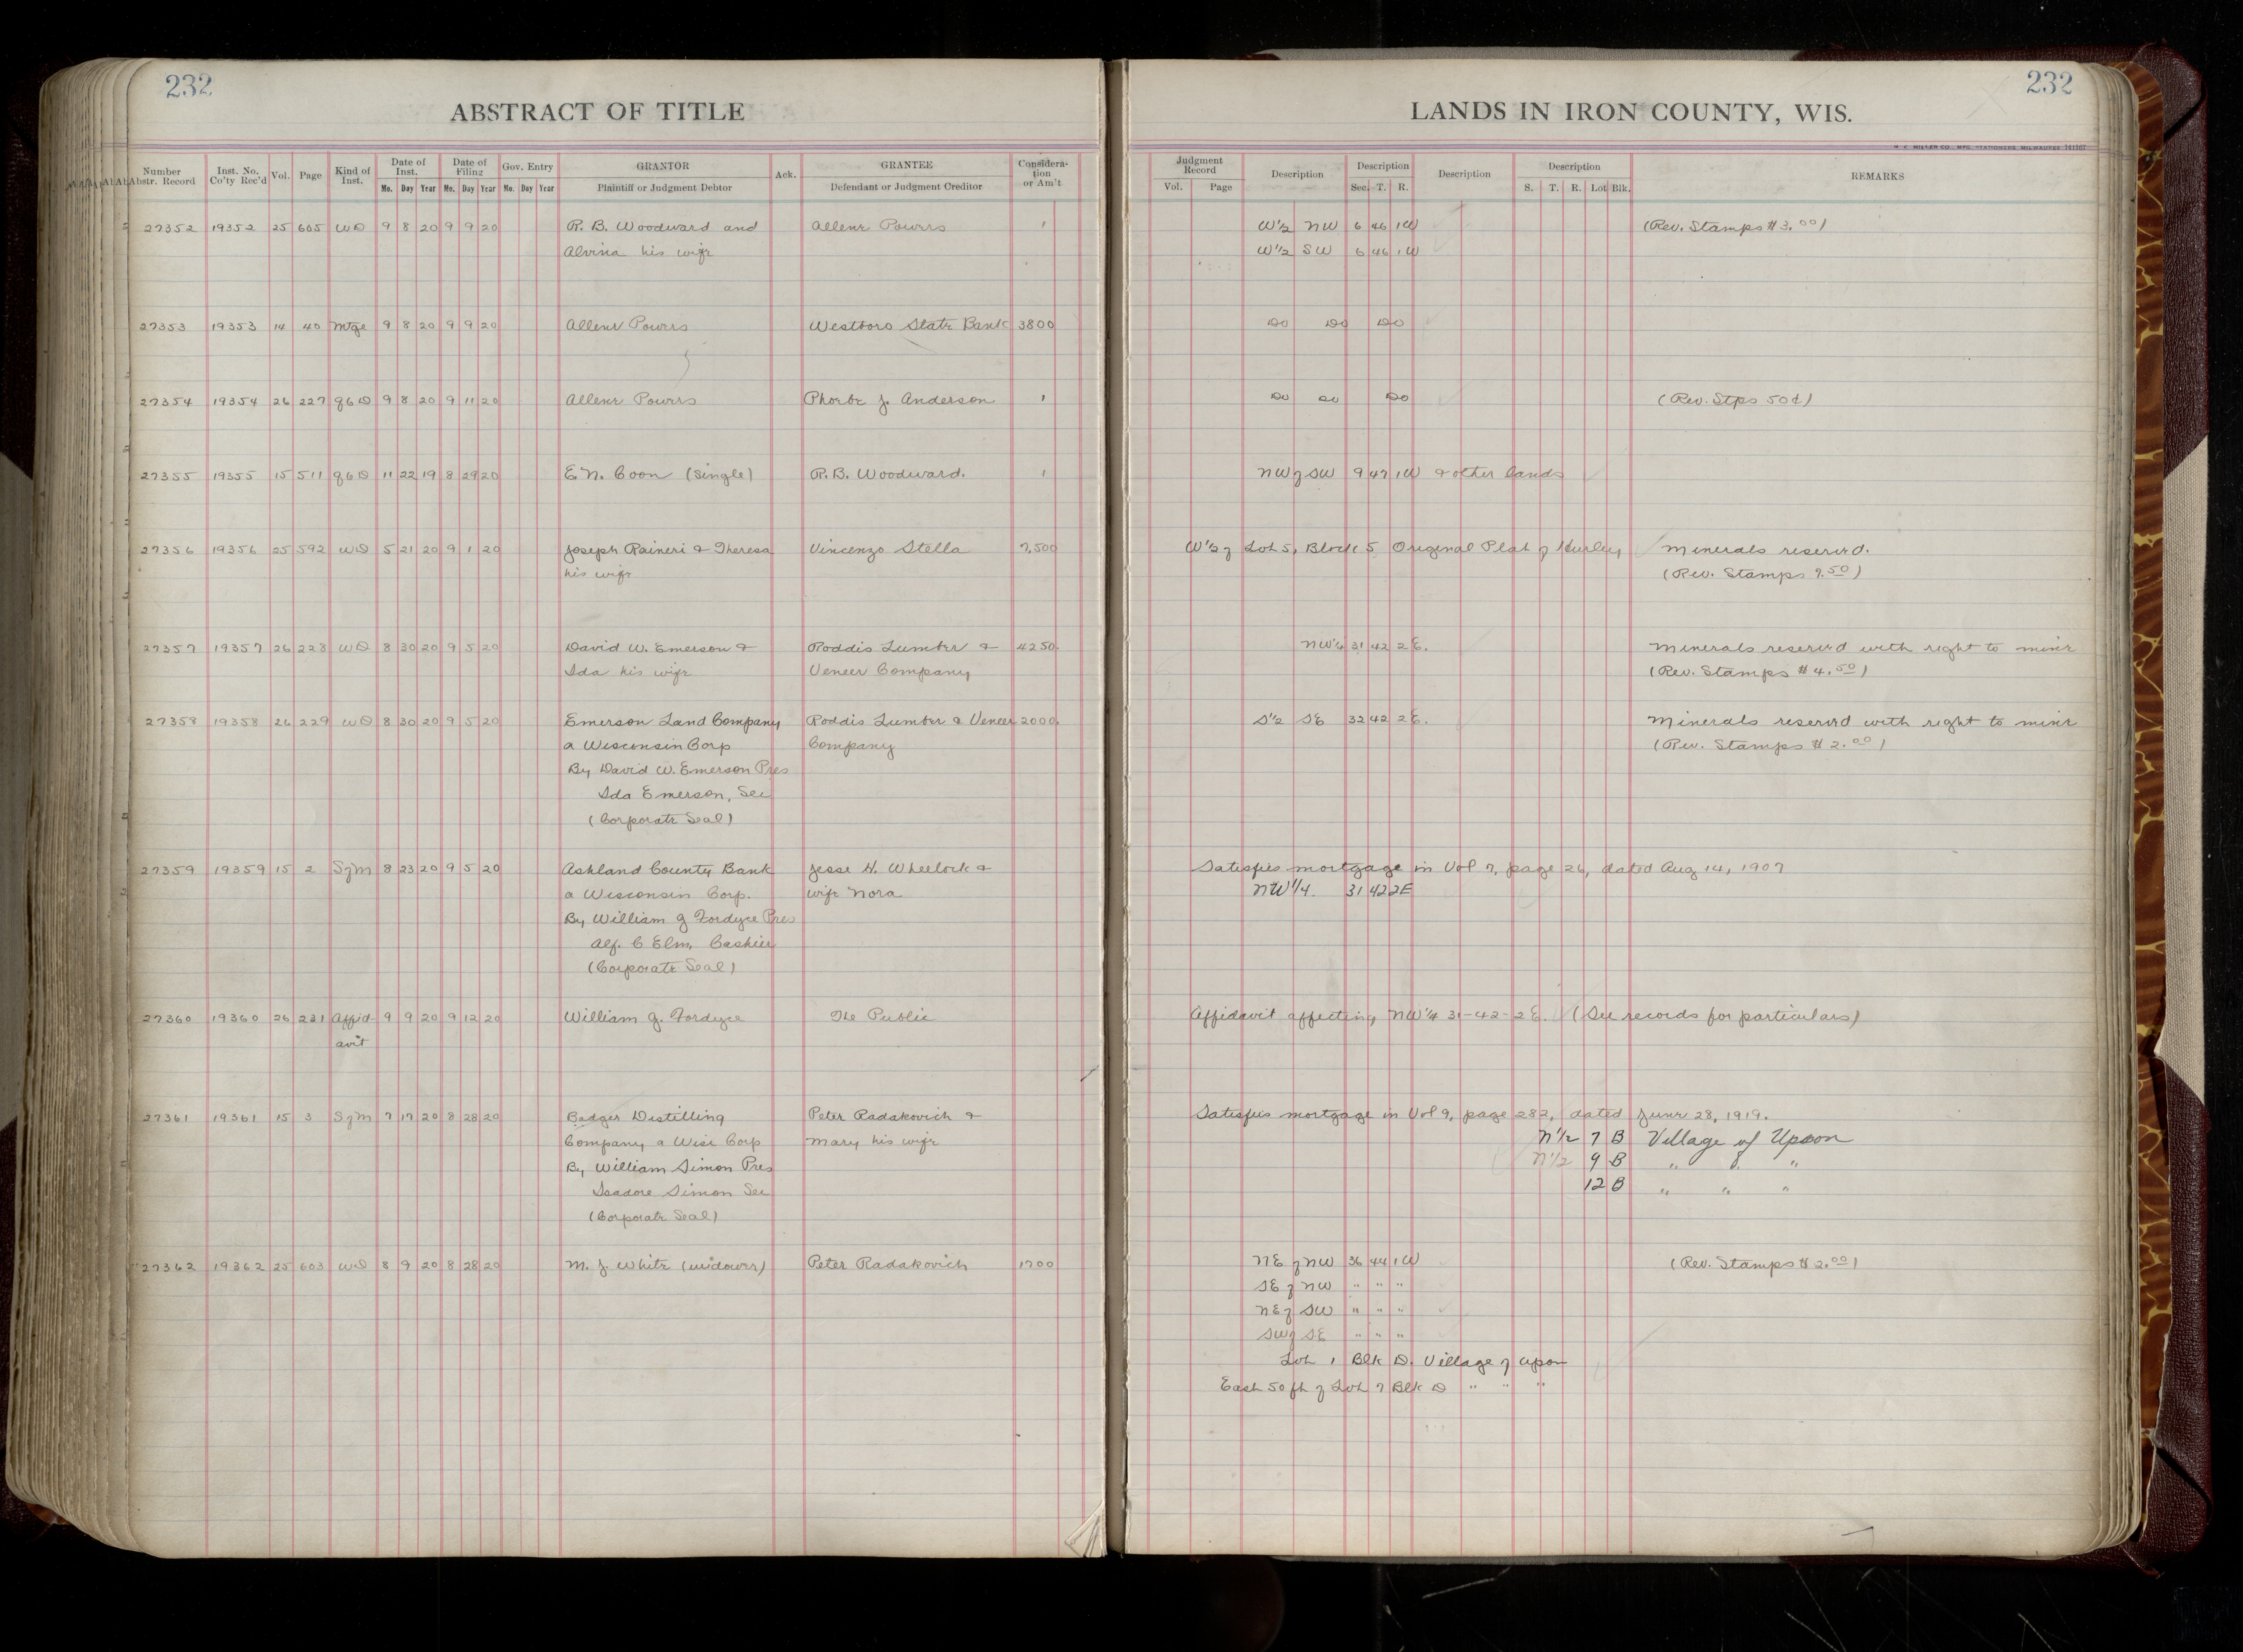 232
232
ABSTRACT OF TITLE
LANDS IN IRON COUNTY, WIS.
Number Abstr. Record Inst. No. Co'ty Rec'd Vol. Page Kind of Inst. Date of Inst. Mo. Day Year Date of Filing Mo. Day Year Gov. Entry Mo. Day Year GRANTOR Plaintiff or Judgment Debtor Ack. GRANTEE Defendant or Judgment Creditor Considera-tion or Am't
Judgment Record Vol. Page Description Description Sec. T. R. Description Description S. T. R. Lot Blk. REMARKS
27352 19352 25 605 WD 9 8 20 9 9 20 R. B. Woodward and Allene Powers 1 W½ NW 6 46 1W (Rev. Stamps $3.00)
Alvina his wife W½ SW 6 46 1W
27353 19353 14 40 Mtge 9 8 20 9 9 20 Allene Powers Westboro State Bank 3800 Do Do Do
27354 19354 26 227 QCD 9 8 20 9 11 20 Allene Powers Phoebe J. Anderson 1 Do Do Do (Rev. Stps 50¢)
27355 19355 15 511 QCD 11 22 19 8 29 20 E. N. Coon (single) R. B. Woodward. 1 NW of SW 9 47 1W & other lands
27356 19356 25 592 WD 5 21 20 9 1 20 Joseph Raineri & Theresa Vincenzo Stella 7,500 W½ of Lot 5, Block 5 Original Plat of Hurley Minerals reserved.
his wife (Rev. Stamps 7.50)
27357 19357 26 228 WD 8 30 20 9 5 20 David W. Emerson & Roddis Lumber & 4250. NW¼ 31 42 2E. Minerals reserved with right to mine
Ida his wife Veneer Company (Rev. Stamps $4.50)
27358 19358 26 229 WD 8 30 20 9 5 20 Emerson Land Company Roddis Lumber & Veneer 2000. S½ SE 32 42 2E. Minerals reserved with right to mine
a Wisconsin Corp Company (Rev. Stamps $2.00)
By David W. Emerson Pres
Ida Emerson, Sec
(Corporate Seal)
27359 19359 15 2 SofM 8 23 20 9 5 20 Ashland County Bank Jesse H. Wheelock & Satisfies mortgage in Vol 7, page 26, dated Aug 14, 1907
a Wisconsin Corp. wife Nora NW¼. 31 42 2E
By William G Fordyce Pres
Alf. C Elm, Cashier
(Corporate Seal)
27360 19360 26 231 Affid- 9 9 20 9 12 20 William G. Fordyce The Public Affidavit affecting NW¼ 31-42-2E. (See records for particulars)
avit
27361 19361 15 3 SofM 7 17 20 8 28 20 Badger Distilling Peter Radakovich & Satisfies mortgage in Vol 9, page 282, dated June 28, 1919.
Company a Wisc Corp Mary his wife N½ 7 B Village of Upson
By William Simon Pres N½ 9 B " " "
Isadore Simon Sec 12 B " " "
(Corporate Seal)
27362 19362 25 603 WD 8 9 20 8 28 20 M. J. White (widower) Peter Radakovich 1700 NE of NW 36 44 1W (Rev. Stamps $2.00)
SE of NW " " "
NE of SW " " "
SW of SE " " "
Lot 1 Blk D. Village of Upson
East 50 ft of Lot 7 Blk D " " "